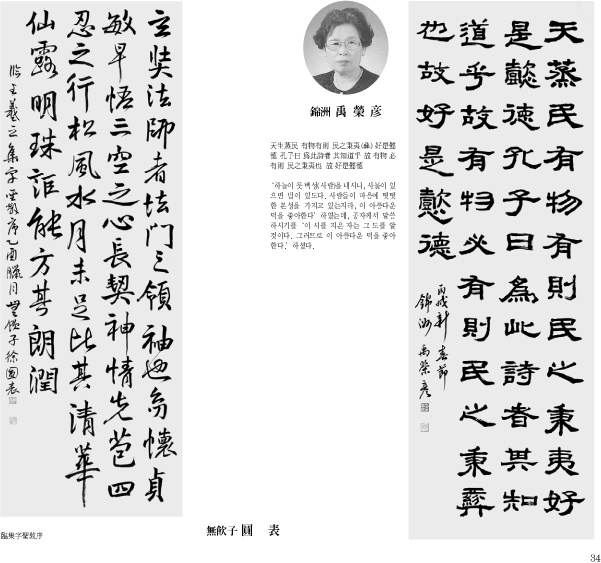 天蒸民有物有則民之秉夷好
是懿德孔子曰爲此詩者其知
道乎故有物必有則民之秉彛
也故好是懿德
丙戌新春節
錦洲 禹榮彦
錦洲 禹 榮 彦
天生蒸民 有物有則 民之秉夷(彛) 好是懿
德 孔子曰 爲此詩者 其知道乎 故 有物 必
有則 民之秉夷也 故 好是懿德
‘하늘이 뭇 백성(사람)을 내시니, 사물이 있
으면 법이 있도다. 사람들이 마음에 떳떳
한 본성을 가지고 있는지라, 이 아름다운
덕을 좋아한다’ 하였는데, 공자께서 말씀
하시기를 ‘이 시를 지은 자는 그 도를 알
것이다. 그러므로 이 아름다운 덕을 좋아
한다.’ 하셨다.
玄奘法師者法門之領袖也幼懷貞
敏早悟三空之心長契神情先苞四
忍之行松風水月未足比其清華
仙露明珠詎能方其朗潤
臨王羲之集字聖教序乙酉臘月 子徐圓表
臨集字聖敎序
無飮子 圓 表
34